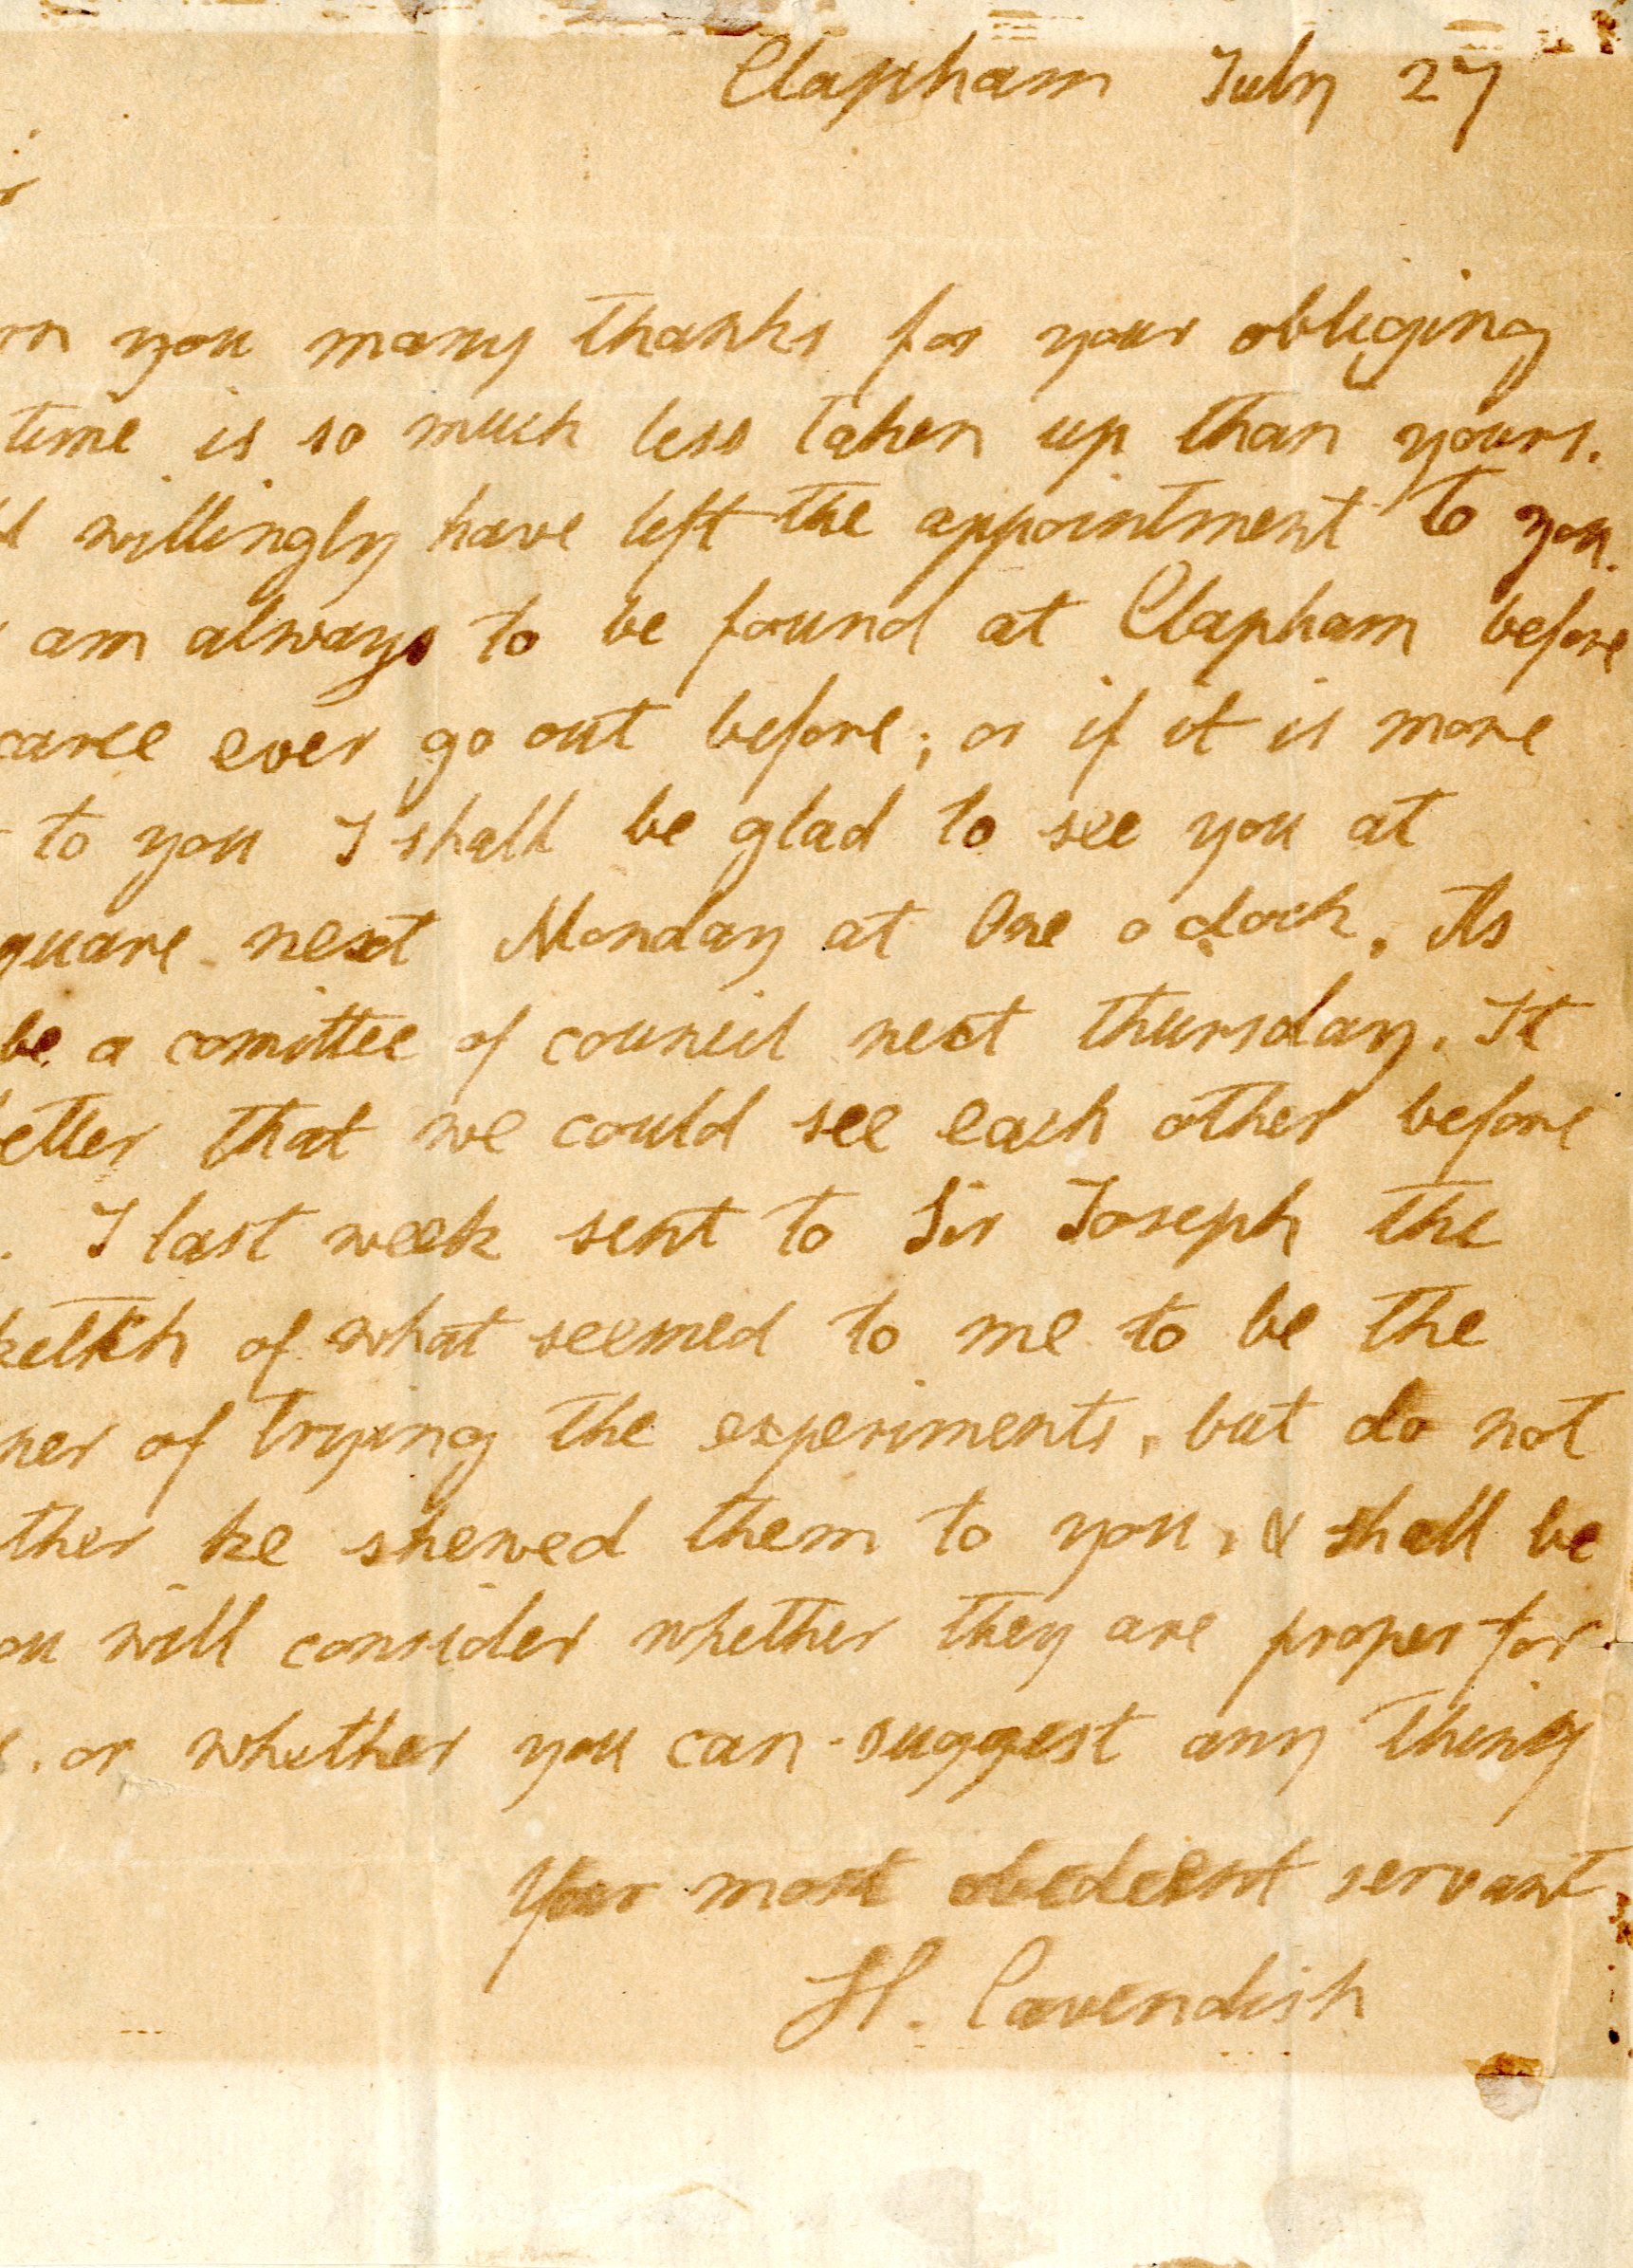 Clapham July 27
you many thanks for your obliging
time is so much less taken up than yours.
willingly have left the appointment to you.
am always to be found at Clapham before
ever go out before; or if it is more
to you I shall be glad to see you at
next Monday at One o clock. As
be a comittee of council next thursday. It
that we could see each other before
. I last week sent to Sir Joseph the
of what seemed to me to be the
of trying the experiments, but do not
he shewed them to you, & shall be
will consider whether they are proper for
, or whether you can suggest any thing
Your most obedient servant
H. Cavendish